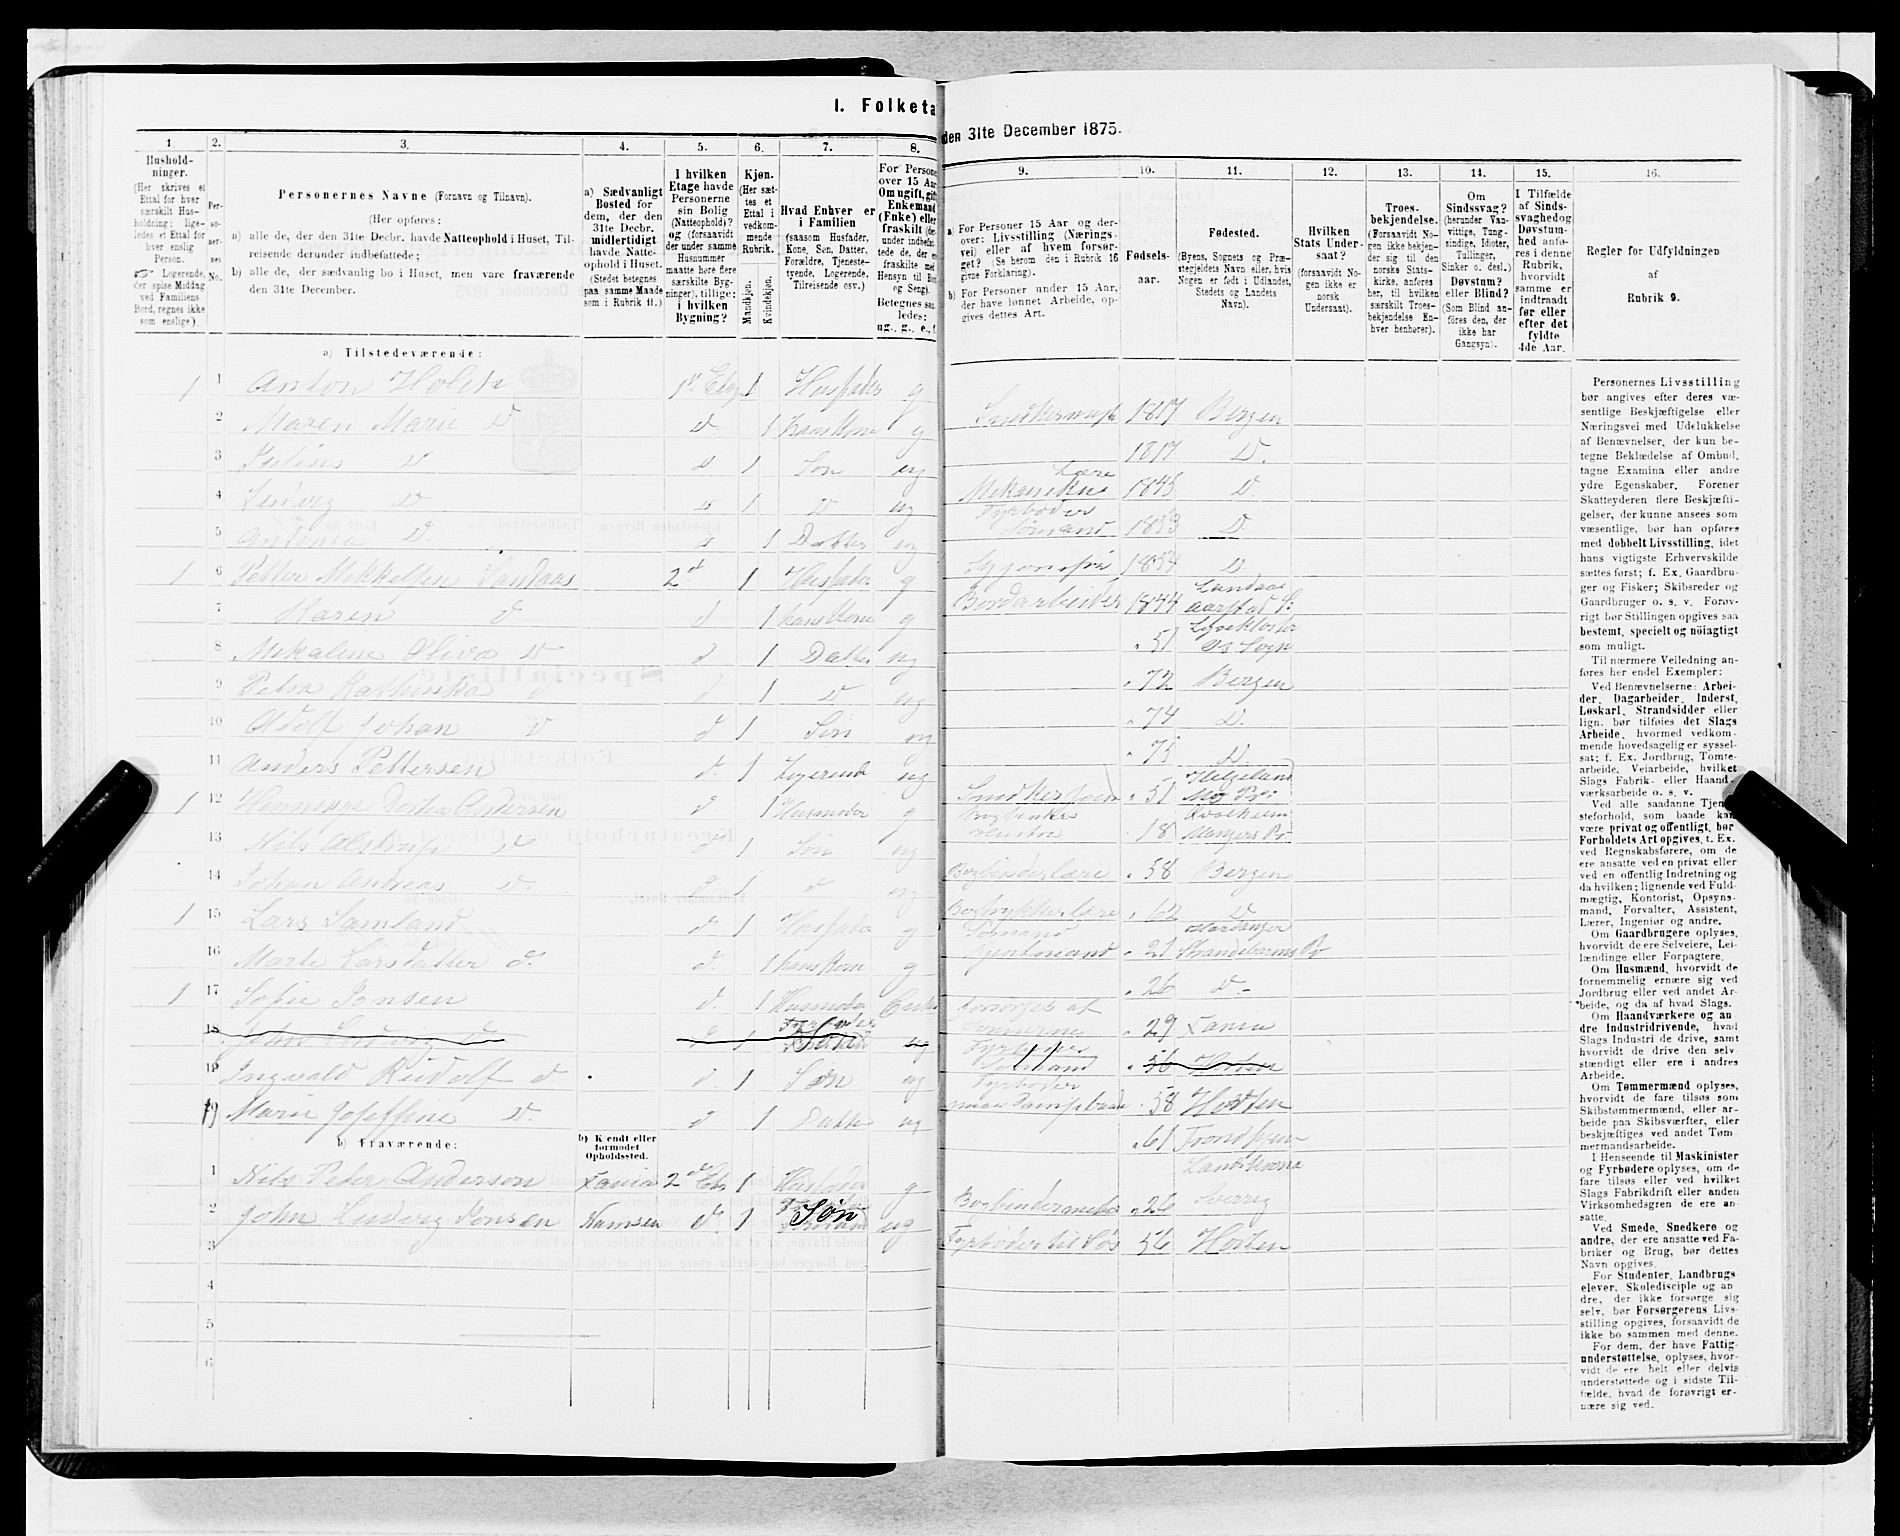 I. Folketa
den 31te December 1875.
1.
2.
3.
4.
5.
6.
7.
8.
9.
10.
11.
12.
13.
14.
15.
16.
Hushold-
ninger.
(Her skrives et
Ettal for hver
særskilt Hus-
holdning; lige-
ledes et Ettal for
hver enslig
Person.
☞ Logerende,
der spise Middag
ved Familiens
Bord, regnes ikke
som enslige).
Per-
so-
ner-
nes
No.
Personernes Navne (Fornavn og Tilnavn).
(Her opføres:
a) alle de, der den 31te Decbr. havde Natteophold i Huset, Til-
reisende derunder indbefattede;
b) alle de, der sædvanlig bo i Huset, men vare fraværende
den 31te December.
a) Sædvanligt
Bosted for
dem, der den
31te Decbr.
midlertidigt
havde Natte-
ophold i Huset.
(Stedet betegnes
paa samme Maade
som i Rubrik 11.)
I hvilken
Etage havde
Personerne
sin Bolig
(Natteophold)?
og (forsaavidt
der under samme
Husnummer
maatte høre flere
særskilte Byg-
ninger), tillige:
i hvilken
Bygning?
Kjøn.
(Her sæt-
tes et
Ettal i
vedkom-
mende
Rubrik.
Mandkjøn.
Kvindekjøn.
Hvad Enhver er
i Familien
(saasom Husfader,
Kone, Søn, Datter,
Forældre, Tjeneste-
tyende, Logerende,
Tilreisende osv.)
For Persone
over 15 Aar
Om ugift, gift
Enkemand
(Enke) eller
fraskilt (der-
under indbefat-
tede de, der ere
fraskilte med
Hensyn til Bord
og Seng).
Betegnes saa-
ledes:
ug., g., e., f.
a) For Personer 15 Aar og der-
over: Livsstilling (Nærings-
vei) eller af hvem forsør-
get? (Se herom den i Rubrik 16
givne Forklaring).
b) For Personer under 15 Aar,
der have lønnet Arbeide, op-
gives dettes Art.
Fødsels-
aar.
Fødested.
(Byens, Sognets og Præ-
stegjeldets Navn eller, hvis
Nogen er født i Udlandet,
Stedets og Landets
Navn).
Hvilken
Stats Under-
saat?
(forsaavidt No-
gen ikke er
norsk
Undersaat).
Troes-
bekjendelse.
(Forsaavidt No-
gen ikke bekjen-
der sig til den
norske Stats-
kirke, anføres
her, til hvilken
særskilt Troes-
bekjendelse En-
hver henhører).
Om
Sindssvag?
(herunder Van-
vittige, Tung-
sindige, Idioter,
Tullinger,
Sinker o. desl.)
Døvstum?
eller Blind?
(Som Blind an-
føres den, der
ikke har
Gangsyn).
I Tilfælde
af Sinds-
svaghed og
Døvstum-
hed anfø-
res i denne
Rubrik,
hvorvidt
samme er
indtraadt
før eller
efter det
fyldte
4de Aar.
Regler for Udfyldningen
af
Rubrik 9.
a) Tilstedeværende:
1 1 Anton Holck 1st Etg 1 Husfader g Snedkersvend 1817 Bergen
2 Maren Marie D D 1 hans Kone g 1817 D.
3 Julius D D 1 Søn ug Mekaniker Lære 1845 D.
4 Ludvig D D 1 D ug Fyrbøder Sømand 1853 D.
5 Antonia D. D 1 Datter ug Syjomfru 1854 D.
1 6 Petter Mikkelsen Landaas 2d 1 Husfader g Bordarbeider 1844 Landaas Aarstad Pr
7 Karen D d 1 hans Kone g " 51 Lysekloster Os Sogn
8 Mikaline Oliva D d 1 Datter ug " 72 Bergen
9 Petra Kathinka D d 1 D ug " 74 D.
10 Adolf Johan D d 1 Søn ug " 75 D.
11 Anders Pettersen d. 1 Logerende ug Snedkersvend " 51 Helgeland Mo Pr
1 12 Dorthea Andersen d 1 Husmoder g Bogbinder 18 Mangers Pr
13 Nils D d 1 Søn ug Bogbinderlære " 58 Bergen
14 Johan Andreas D. d 1 d ug Bogtrykkerlære " 62 D
1 15 Lars Samland d. 1 Husfader g Sømand Gjentmand " 21 Hardanger Strandebarms Pr
16 Marte Larsdatter d. d. 1 hans Kone g " 26 D. -
1 17 Sofie Jonsen d. 1 Husmoder Enke Forsørges af Sønnerne " 29 Xania
18 John Ludvig D d 1 Søn ug Fyrbøder Sømand " 56 Horten
18 Ingvald Rudolf d d. 1 Søn ug Fyrbøder " 58 Horten
19 Marie Josefine D. d 1 Datter ug " 61 Trondhjem
b) Fraværende:
b) Kendt eller
formodet
Opholdssted.
1 Nils Peter Anderson Xania 2d Etg 1 Husfader g Bogbindersvend " 26 Landskrona Sverrig
2 John Ludvig Jonsen Namsen d 1 Søn ug Fyrbøder til Søs 56 Horten
3
4
5
6
Personernes Livsstilling
bør angives efter deres væ-
sentlige Beskjæftigelse eller
Næringsvei med Udelukkelse
af Benævnelser, der kun be-
tegne Beklædelse af Ombud,
tagne Examina eller andre
ydre Egenskaber. Forener
Skatteyderen flere Beskjæfti-
gelser, der kunne ansees som
væsentlige, bør han opføres
med dobbelt Livsstilling, idet
hans vigtigste Erhvervskilde
sættes først; f. Ex. Gaardbru-
ger og Fisker; Skibsreder og
Gaardbruger o. s. v. Forøv-
rigt bør Stillingen opgives saa
bestemt, specielt og nøiagtigt
som muligt.
Til nærmere Veiledning an-
føres her endel Exempler:
Ved Benævnelserne: Arbei-
der, Dagarbeider, Inderst,
Løskarl, Strandsidder eller
lign. bør tilføies det Slags
Arbeide, hvormed vedkom-
mende hovedsagelig er syssel-
sat; f. Ex. Jordbrug, Tomte-
arbeide, Veiarbeide, hvilket
Slags Fabrik- eller Haand-
værksarbeide o. s. v.
Ved alle saadanne Tjene-
steforhold, som baade kan
være privat og offentligt, bør
Forholdets Art opgives, t. Ex.
ved Regnskabsførere, om de
ere ansatte ved en privat eller
ved en offentlig Indretning og
da hvilken; lignende ved Fuld-
mægtig, Kontorist, Opsyns-
mand, Forvalter, Assistent,
Lærer, Ingeniør og andre.
Om Gaardbrugere oplyses,
hvorvidt de ere Selveiere, Lei-
lændinge eller Forpagtere.
Om Husmænd, hvorvidt de
fornemmelig ernære sig ved
Jordbrug eller ved andet Ar-
beide, og da af hvad Slags.
Om Haandværkere og an-
dre Industridrivende, hvad
Slags Industri de drive, samt
hvorvidt de drive den selv-
stændigt eller ere i andres
Arbeide.
Om Tømmermænd oplyses,
hvorvidt de fare tilsøs som
Skibstømmermænd, eller ar-
beide paa Skibsværfter, eller
beskjæftiges ved andet Tøm-
mermandsarbeide.
I Henseende til Maskinister
og Fyrbødere oplyses, om de
fare tilsøs eller ved hvilket
Slags Fabrikdrift eller anden
Virksomhedsgren de ere an-
satte.
Ved Smede, Snedkere og
andre, der ere ansatte ved Fa-
briker og Brug, bør dettes
Navn opgives.
For Studenter, Landbrugs-
elever, Skoledisciple og an-
dre, der ikke forsørge sig
selv, bør Forsørgerens Livs-
stilling opgives, forsaavidt de
ikke bo sammen med denne.
For dem, der have Fattig-
understøttelse, oplyses, hvor-
vidt de ere helt eller delvis
understøttede og i sidste Til-
fælde, hvad de forøvrigt er-
nære sig ved.